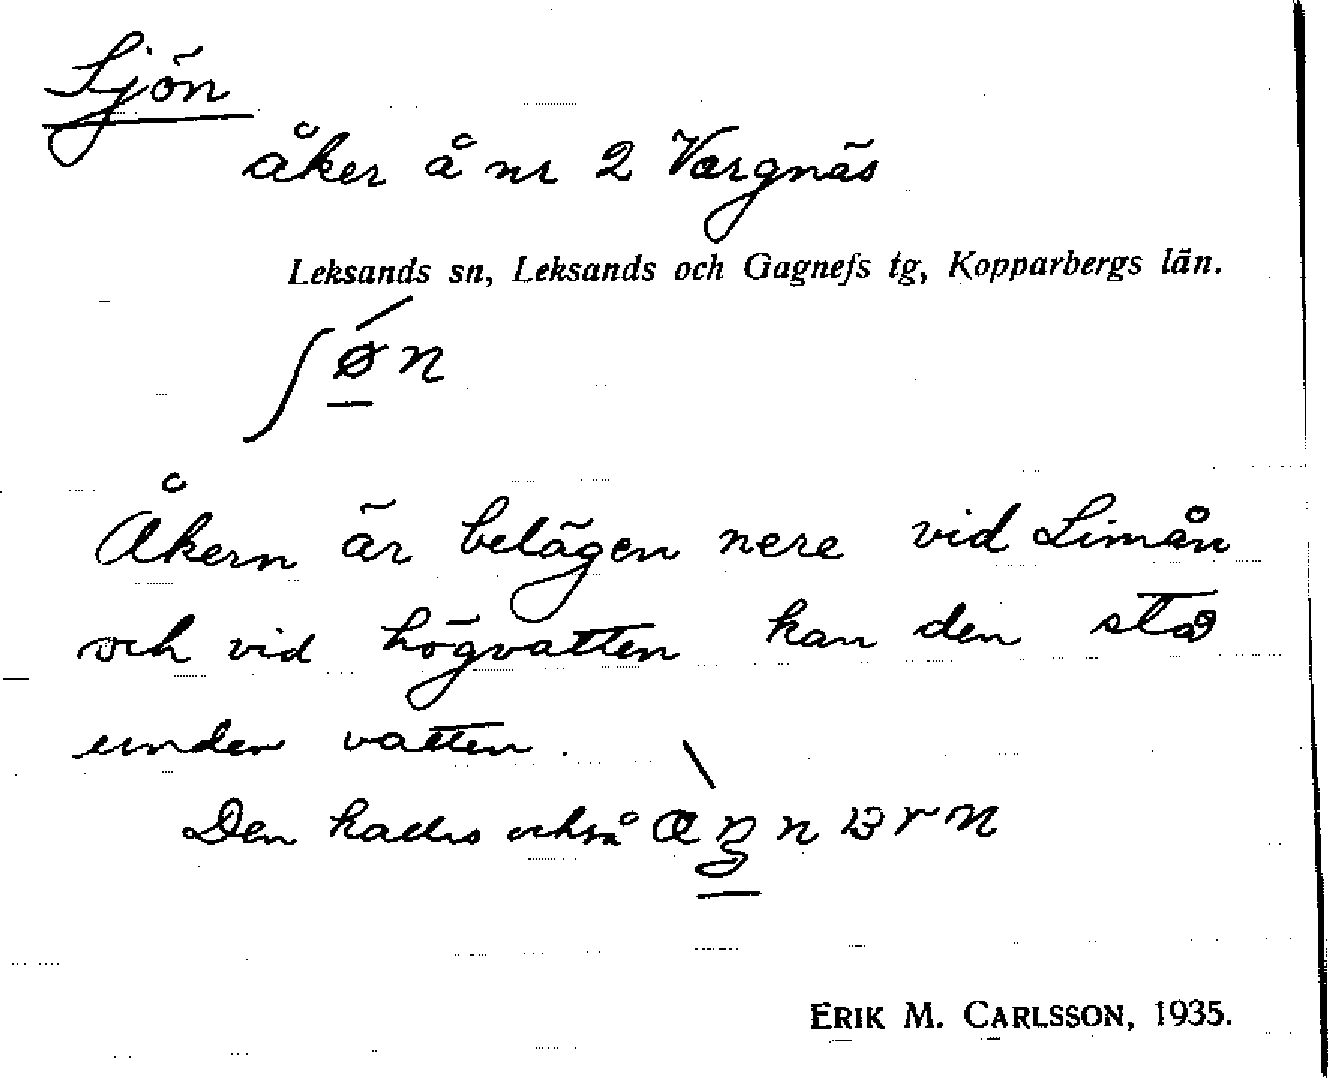 Sjön
åker å nr 2 Vargnäs
Leksands sn, Leksands och Gagnefs tg, Kopparbergs län.
ʃǿ̠n
Åkern är belägen nere vid Limån
och vid högvatten kan den stå
under vatten.
Den kallas också
ERIK M. CARLSSON, 1935.